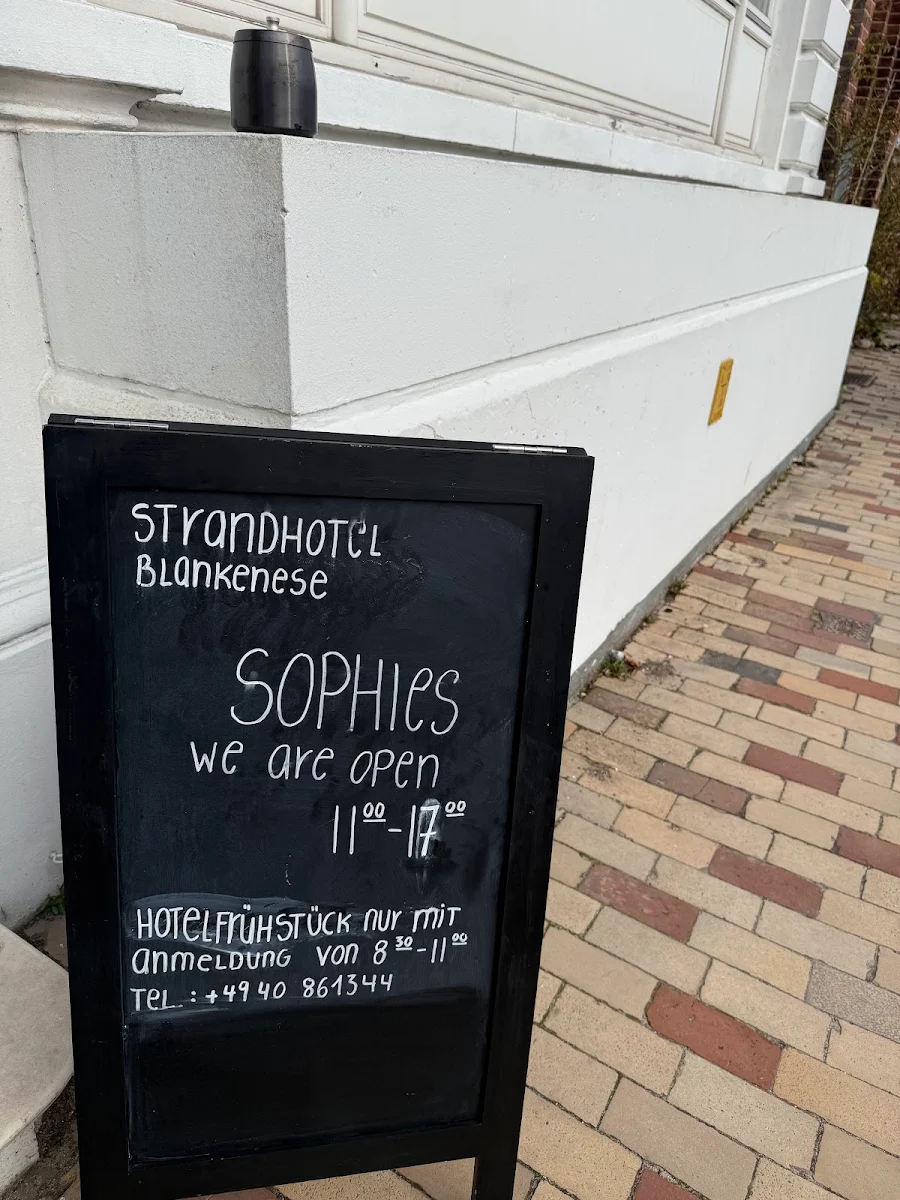 STranDHOTeL
BLanKenese
SOPHIes
we are open
11⁰⁰-17⁰⁰
HOTeLFrüHSTÜCK nur miT
anmeLDUnG von 8³⁰-11⁰⁰
TeL.: +49 40 861344